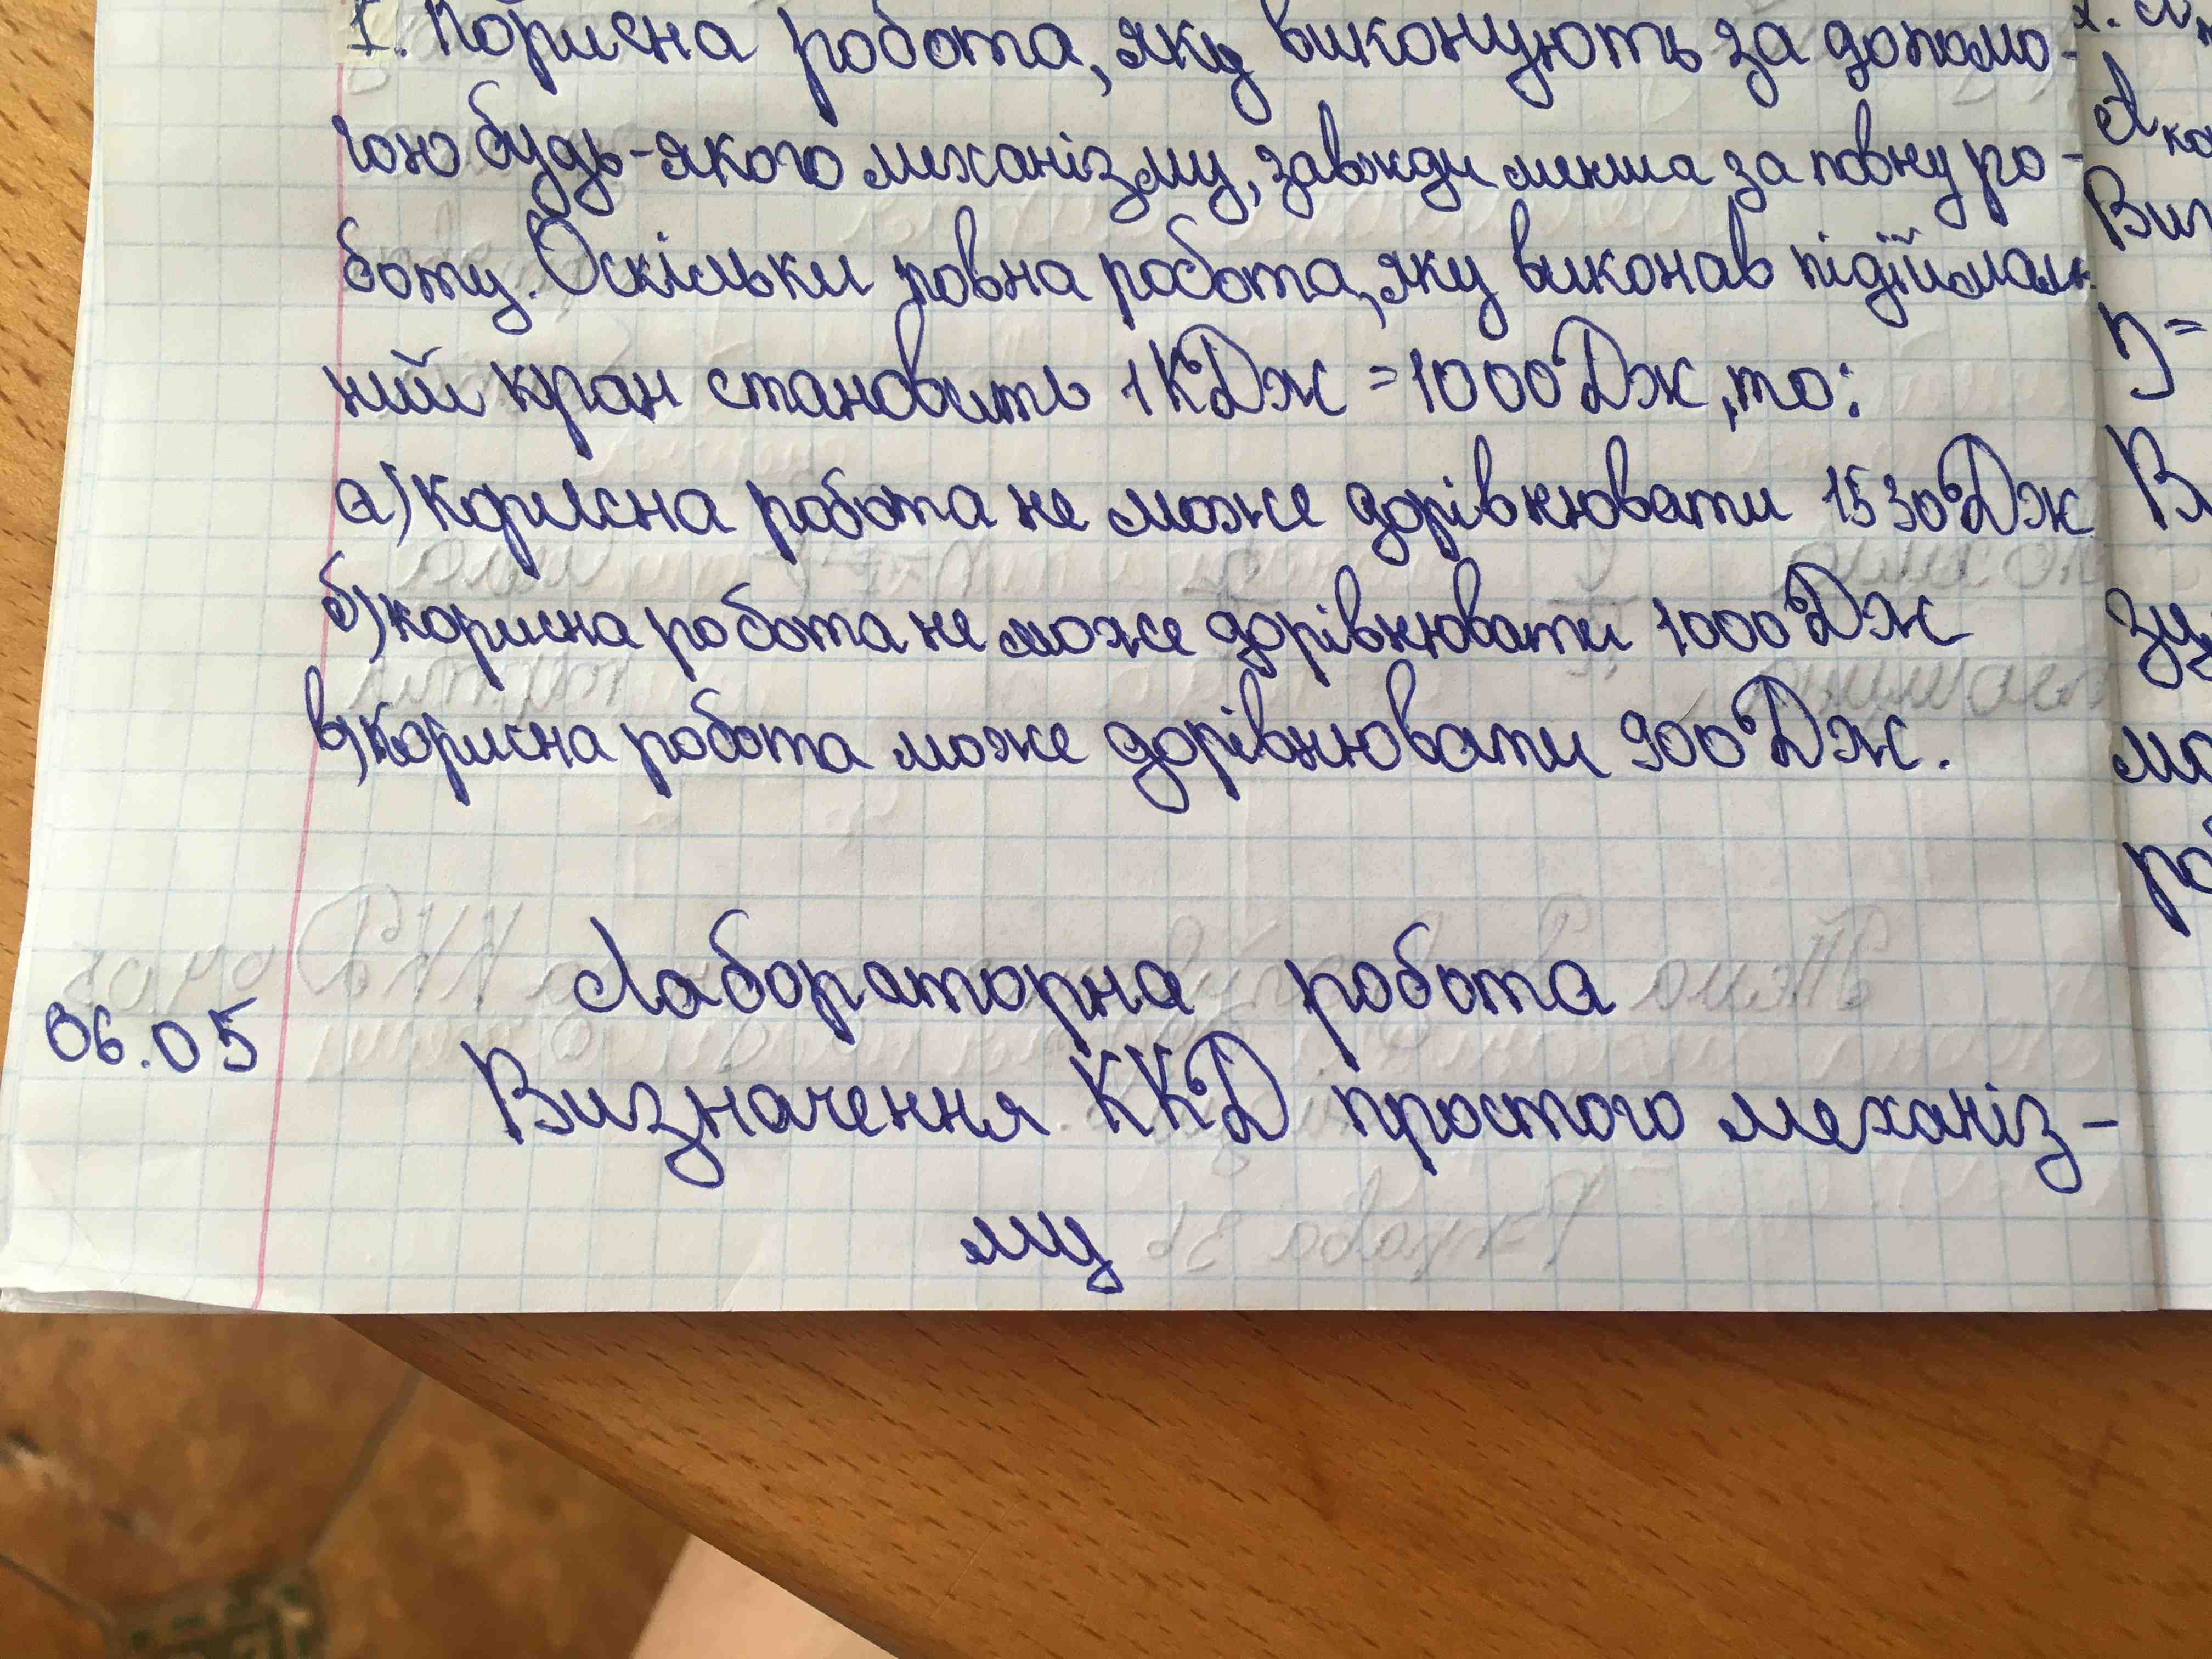 1. Корисна робота, яку виконують за допомо-
гою будь-якого механізму, завжди менша за повну ро-
боту. Оскільки повна робота, яку виконав підіймаль-
ний кран становить 1КДж = 1000Дж, то:
а) корисна робота не може дорівнювати 1530Дж
б) корисна робота не може дорівнювати 1000Дж
в) корисна робота може дорівнювати 900Дж.
Лабораторна робота
06.05
Визначення ККД простого механіз-
му
η=